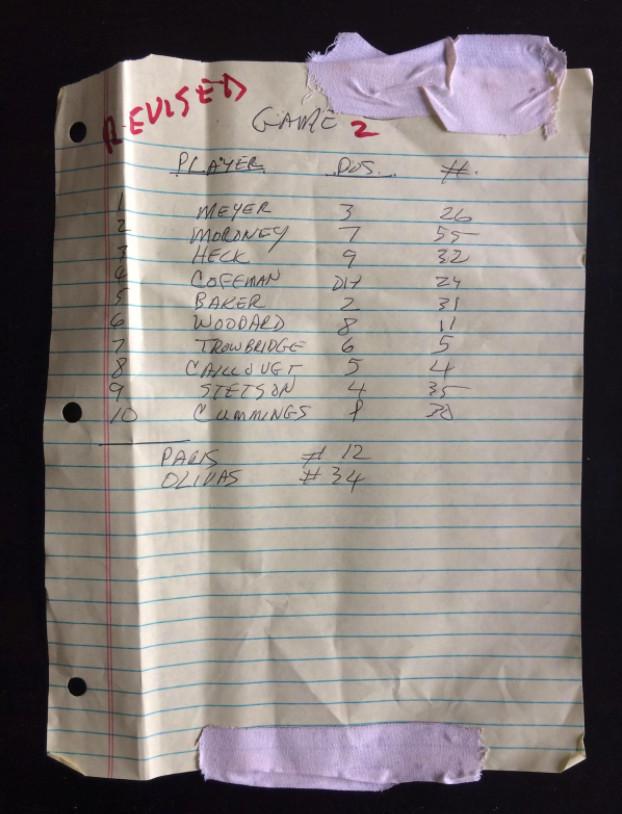 REVISED
GAME 2
PLAYER POS. #.
1 MEYER 3 26
2 MORONEY 7 55
3 HECK 9 32
4 COFEMAN DH 24
5 BAKER 2 31
6 WOODARD 8 11
7 TROWBRIDGE 6 5
8 CAILLOUET 5 4
9 STETSON 4 35
10 CUMMINGS P 30
PARIS # 12
OLIVAS # 34